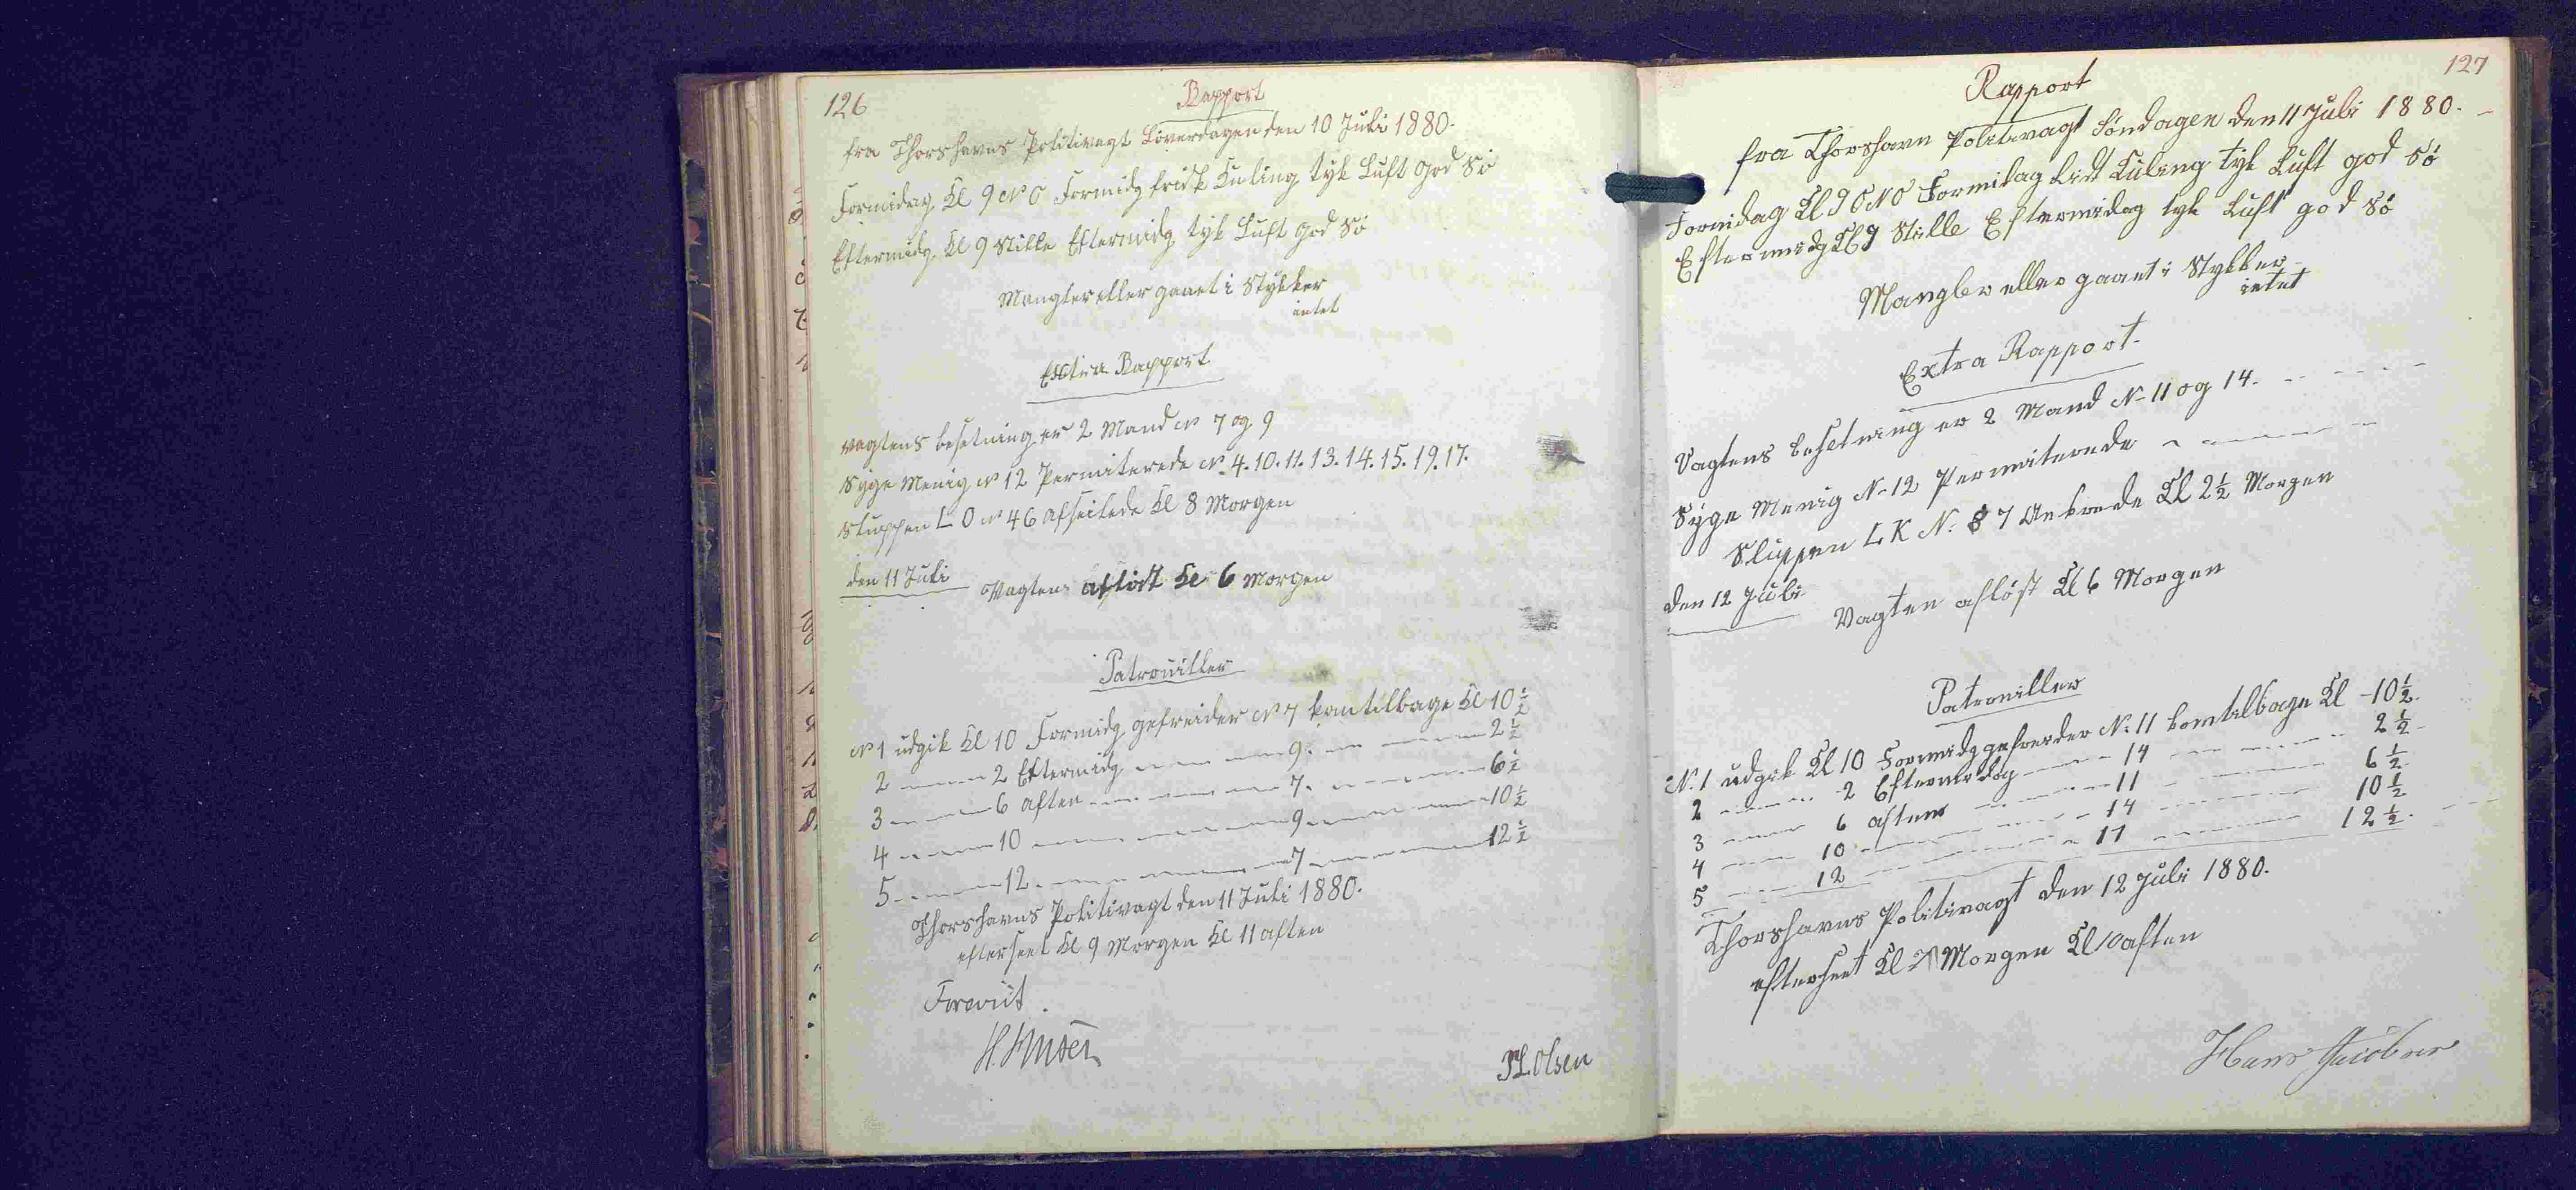 126
Rapport
fra Thorshavns Politivagt Löverdagen den 10 Juli 1880.
Formidag Kl 9 N O Formidg frisk Kuling tyk Luft god Sö
Eftermidg Kl 9 Stille Eftermidg tyk Luft god Sö
Mangler eller gaaet i Stykker
intet
Extra Rapport
Vagtens besetning er 2 Mand N 7 og 9
Syge Menig N 12 Permiterede N. 4. 10. 11. 13. 14. 15. 19. 17.
Sluppen L O N 46 afseilede Kl 8 Morgen
den 11 Juli
Vagten aflöst Kl 6 Morgen
Patrouiller
N 1 udgik Kl 10 Formidg gefreider N 7 komtilbage Kl 10 ½
2 — 2 Eftermidg — 9. — 2 ½
3 — 6 aften — 7. — 6 ½
4 — 10 — 9 — 10 ½
5 — 12 — 7 — 12 ½
Thorshavns Politivagt den 11 Juli 1880.
efterseet Kl 9 Morgen Kl 11 aften
Forevist
H.
Olsen
127
Rapport
fra Thorshavn Politivagt Söndagen den 11 Juli 1880.
Formidag Kl 9 O N O Formidag lidt Kuling tyk Luft god Sö
Eftermidg Kl 9 Stille Eftermidag tyk Luft god Sö
Mangler eller gaaet i Stykker
intet
Extra Rapport.
Vagtens besetning er 2 Mand N 11 og 14.
Syge Menig N 12 Permiterede
Sluppen L K N: 87 Ankrede Kl 2 ½ Morgen
den 12 Juli
Vagten aflöst Kl 6 Morgen
Patrouiller
N. 1 udgik Kl 10 Formidg gefreider N: 11 komtilbage Kl 10 ½.
2 — 2 Eftermidag — 14 — 2 ½
3 — 6 aften — 11 — 6 ½
4 — 10 — 14 — 10 ½
5 — 12 — 11 — 12 ½.
Thorshavns Politivagt den 12 Juli 1880.
efterseet Kl Morgen Kl 10 aften
Hans Jacobsen